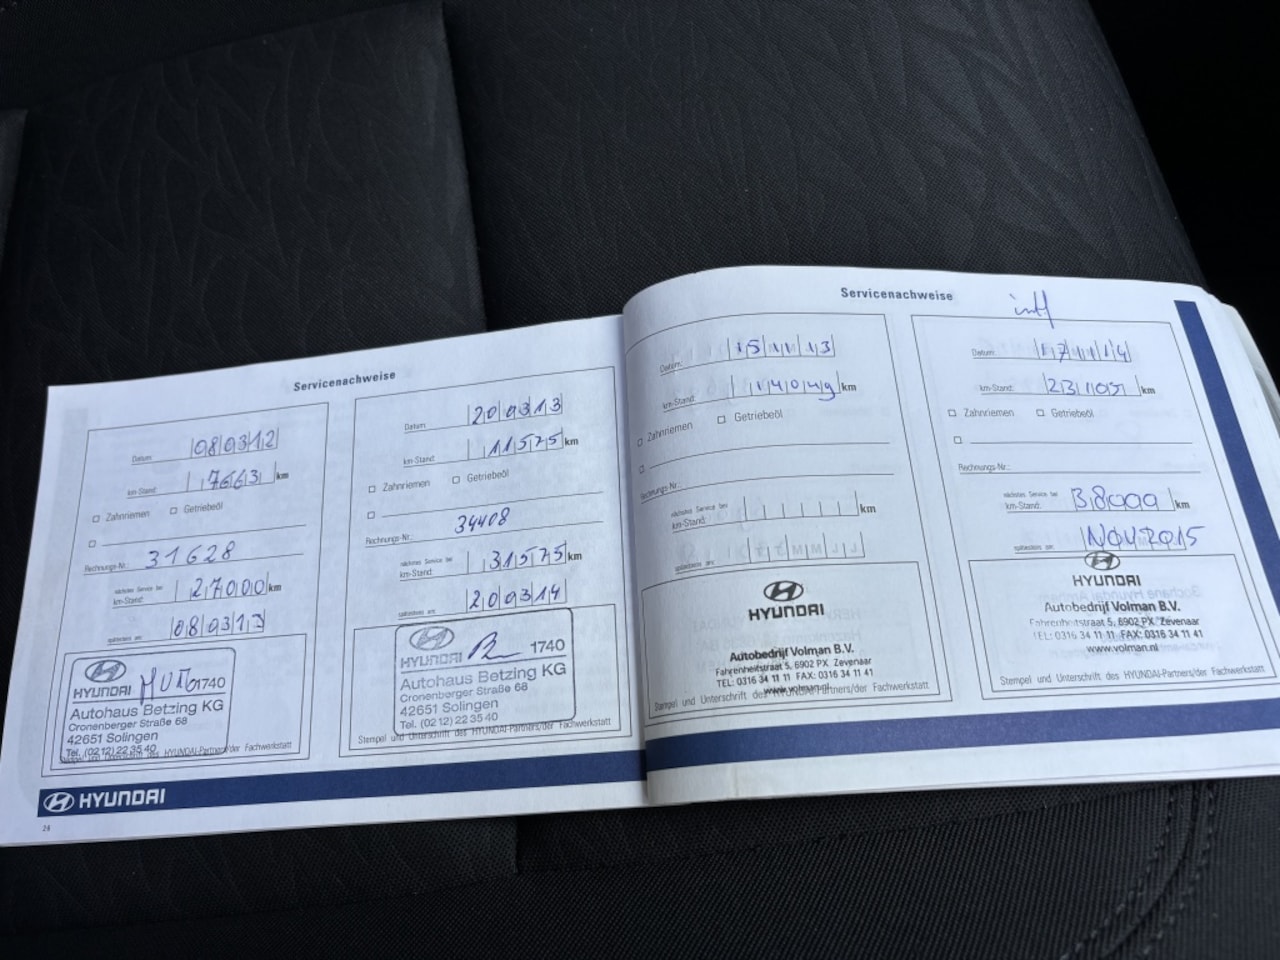 Servicenachweise
Datum: 080312
km-Stand: 7663 km
Zahnriemen Getriebeöl
Rechnungs-Nr.: 31628
nächstes Service bei
km-Stand: 27000 km
spätestens am: 080313
HYUNDAI 01740
Autohaus Betzing KG
Cronenberger Straße 68
42651 Solingen
Tel. (0212) 22 35 40
Stempel und Unterschrift des HYUNDAI-Partners/der Fachwerkstatt
HYUNDAI
24
Datum: 200313
km-Stand: 11575 km
Zahnriemen Getriebeöl
Rechnungs-Nr.: 34408
nächstes Service bei
km-Stand: 31575 km
spätestens am: 200314
HYUNDAI 1740
Autohaus Betzing KG
Cronenberger Straße 68
42651 Solingen
Tel. (0212) 22 35 40
Stempel und Unterschrift des HYUNDAI-Partners/der Fachwerkstatt
Servicenachweise
Datum: 151113
km-Stand: 14049 km
Zahnriemen Getriebeöl
Rechnungs-Nr.:
nächstes Service bei
km-Stand: km
spätestens am: T T M M J J
HYUNDAI
Autobedrijf Volman B.V.
Fahrenheitstraat 5, 6902 PX Zevenaar
TEL: 0316 34 11 11 FAX: 0316 34 11 41
www.volman.nl
Stempel und Unterschrift des HYUNDAI-Partners/der Fachwerkstatt
Datum: 171114
km-Stand: km
Zahnriemen Getriebeöl
Rechnungs-Nr.:
nächstes Service bei
km-Stand: 38000 km
spätestens am: NOV.2015
HYUNDAI
Autobedrijf Volman B.V.
Fahrenheitstraat 5, 6902 PX Zevenaar
TEL: 0316 34 11 11 FAX: 0316 34 11 41
www.volman.nl
Stempel und Unterschrift des HYUNDAI-Partners/der Fachwerkstatt